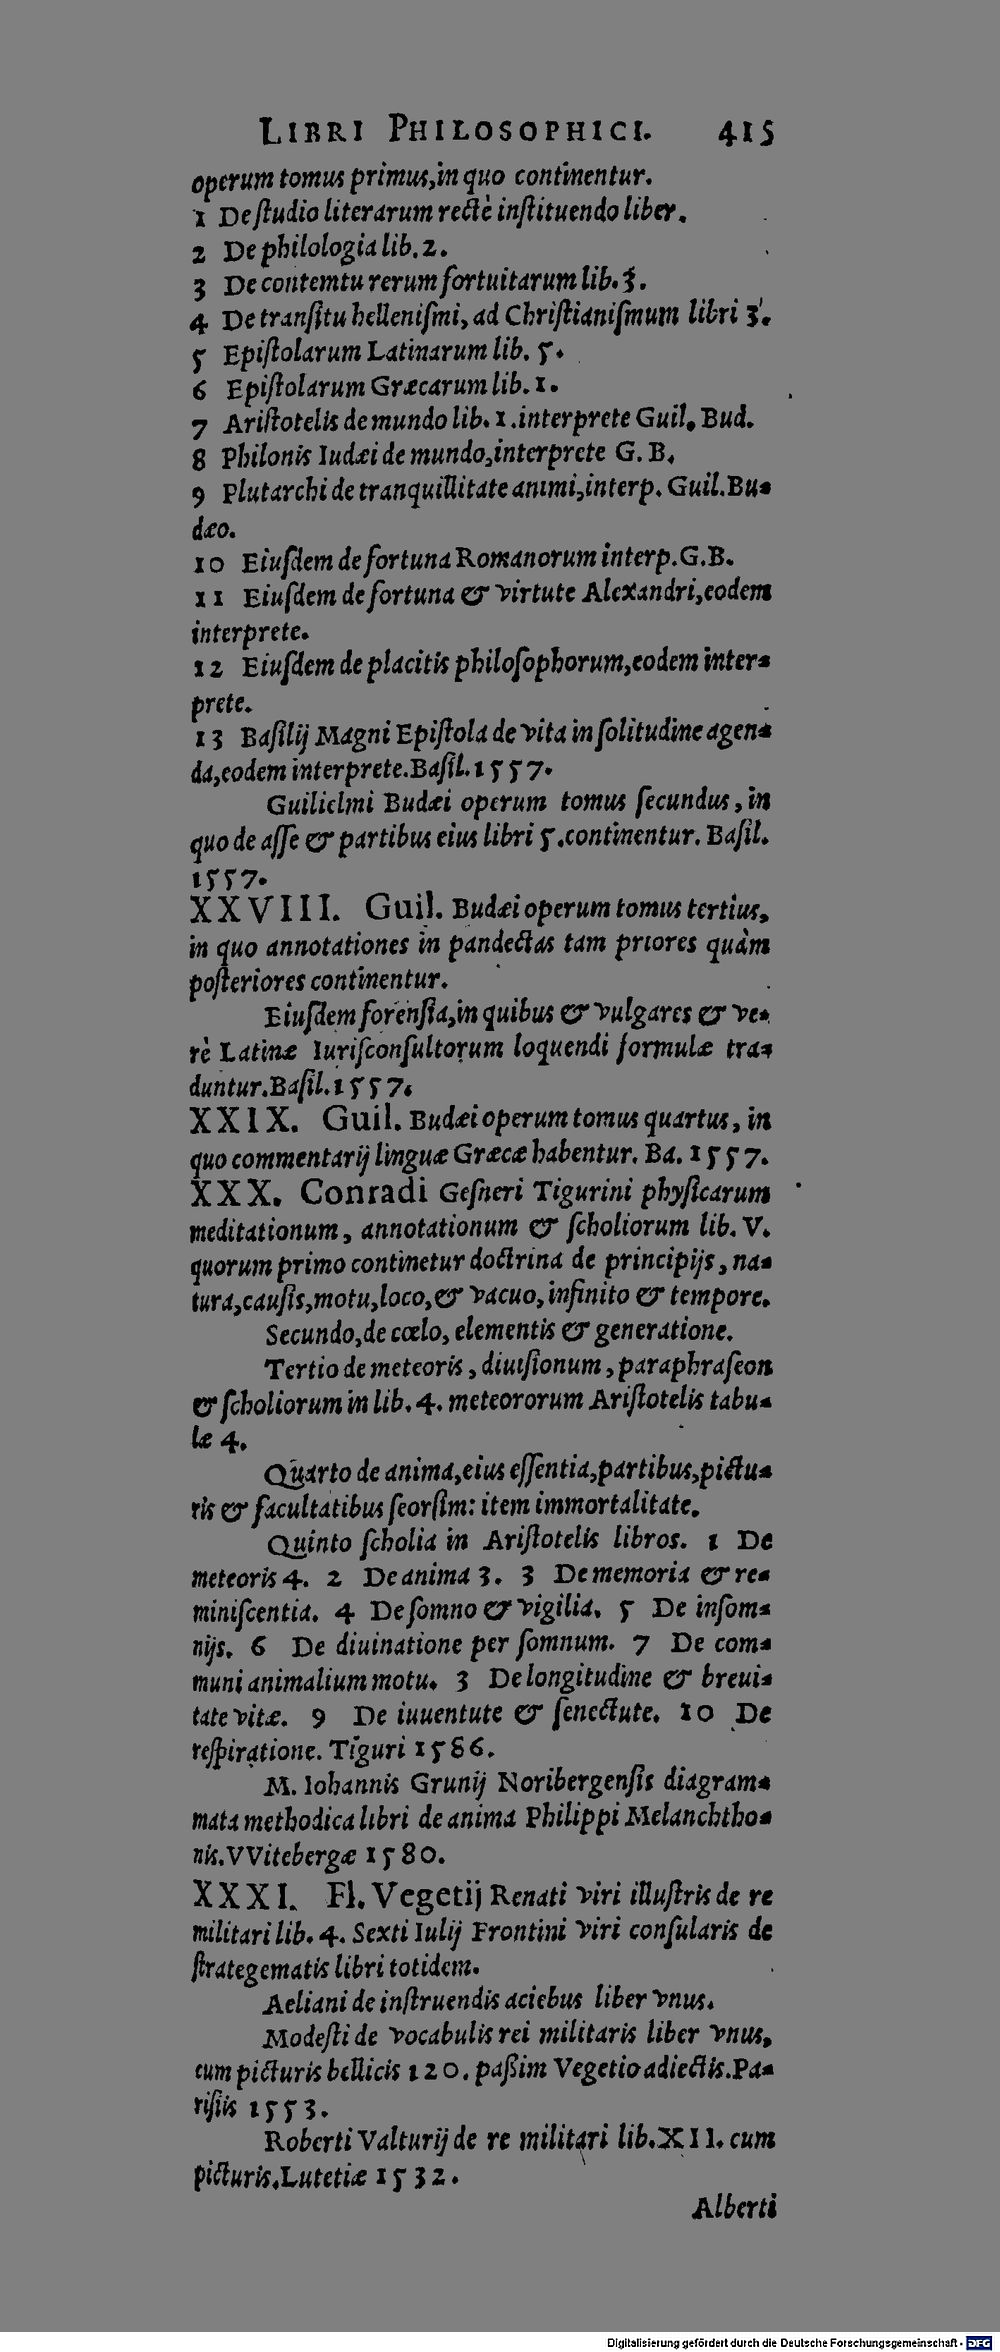 LIBRI PHILOSOPHICI. 415
operum tomus primus,in quo continentur.
1 De ſtudio literarum rectè inſtituendo liber.
2 De philologia lib.2.
3 De contemtu rerum fortuitarum lib.3.
4 De tranſitu helleniſmi, ad Chriſtianiſmum libri 3.
5 Epiſtolarum Latinarum lib. 5.
6 Epiſtolarum Græcarum lib.1.
7 Ariſtotelis de mundo lib.1.interprete Guil. Bud.
8 Philonis Iudæi de mundo,interprete G.B.
9 Plutarchi de tranquillitate animi,interp. Guil.Bu-
dæo.
10 Eiuſdem de fortuna Romanorum interp.G.B.
11 Eiuſdem de fortuna & virtute Alexandri,eodem
interprete.
12 Eiuſdem de placitis philoſophorum,eodem inter-
prete.
13 Baſilij Magni Epiſtola de vita in ſolitudine agen-
da,eodem interprete.Baſil.1557.
Guilielmi Budæi operum tomus ſecundus, in
quo de aſſe & partibus eius libri 5.continentur. Baſil.
1557.
XXVIII. Guil. Budæi operum tomus tertius,
in quo annotationes in pandectas tam priores quàm
poſteriores continentur.
Eiuſdem forenſia,in quibus & vulgares & ve-
rè Latinæ Iuriſconſultorum loquendi formulæ tra-
duntur.Baſil.1557.
XXIX. Guil. Budæi operum tomus quartus, in
quo commentarij linguæ Græcæ habentur. Ba. 1557.
XXX. Conradi Geſneri Tigurini phyſicarum
meditationum, annotationum & ſcholiorum lib. V.
quorum primo continetur doctrina de principijs, na-
tura,cauſis,motu,loco,& vacuo, infinito & tempore.
Secundo,de cœlo, elementis & generatione.
Tertio de meteoris, diuiſionum, paraphraſeon
& ſcholiorum in lib. 4. meteororum Ariſtotelis tabu-
læ 4.
Quarto de anima,eius eſſentia,partibus,pictu-
ris & facultatibus ſeorſim: item immortalitate.
Quinto ſcholia in Ariſtotelis libros. 1 De
meteoris 4. 2 De anima 3. 3 De memoria & re-
miniſcentia. 4 De ſomno & vigilia. 5 De inſom-
nijs. 6 De diuinatione per ſomnum. 7 De com-
muni animalium motu. 3 De longitudine & breui-
tate vitæ. 9 De iuuentute & ſenectute. 10 De
reſpiratione. Tiguri 1586.
M. Iohannis Grunij Noribergenſis diagram-
mata methodica libri de anima Philippi Melanchtho-
nis.VVitebergæ 1580.
XXXI. Fl. Vegetij Renati viri illuſtris de re
militari lib. 4. Sexti Iulij Frontini viri conſularis de
ſtrategematis libri totidem.
Aeliani de inſtruendis aciebus liber vnus.
Modeſti de vocabulis rei militaris liber vnus,
cum picturis bellicis 120. paßim Vegetio adiectis.Pa-
riſiis 1553.
Roberti Valturij de re militari lib.XII. cum
picturis.Lutetiæ 1532.
Alberti
Digitalisierung gefördert durch die Deutsche Forschungsgemeinschaft - DFG